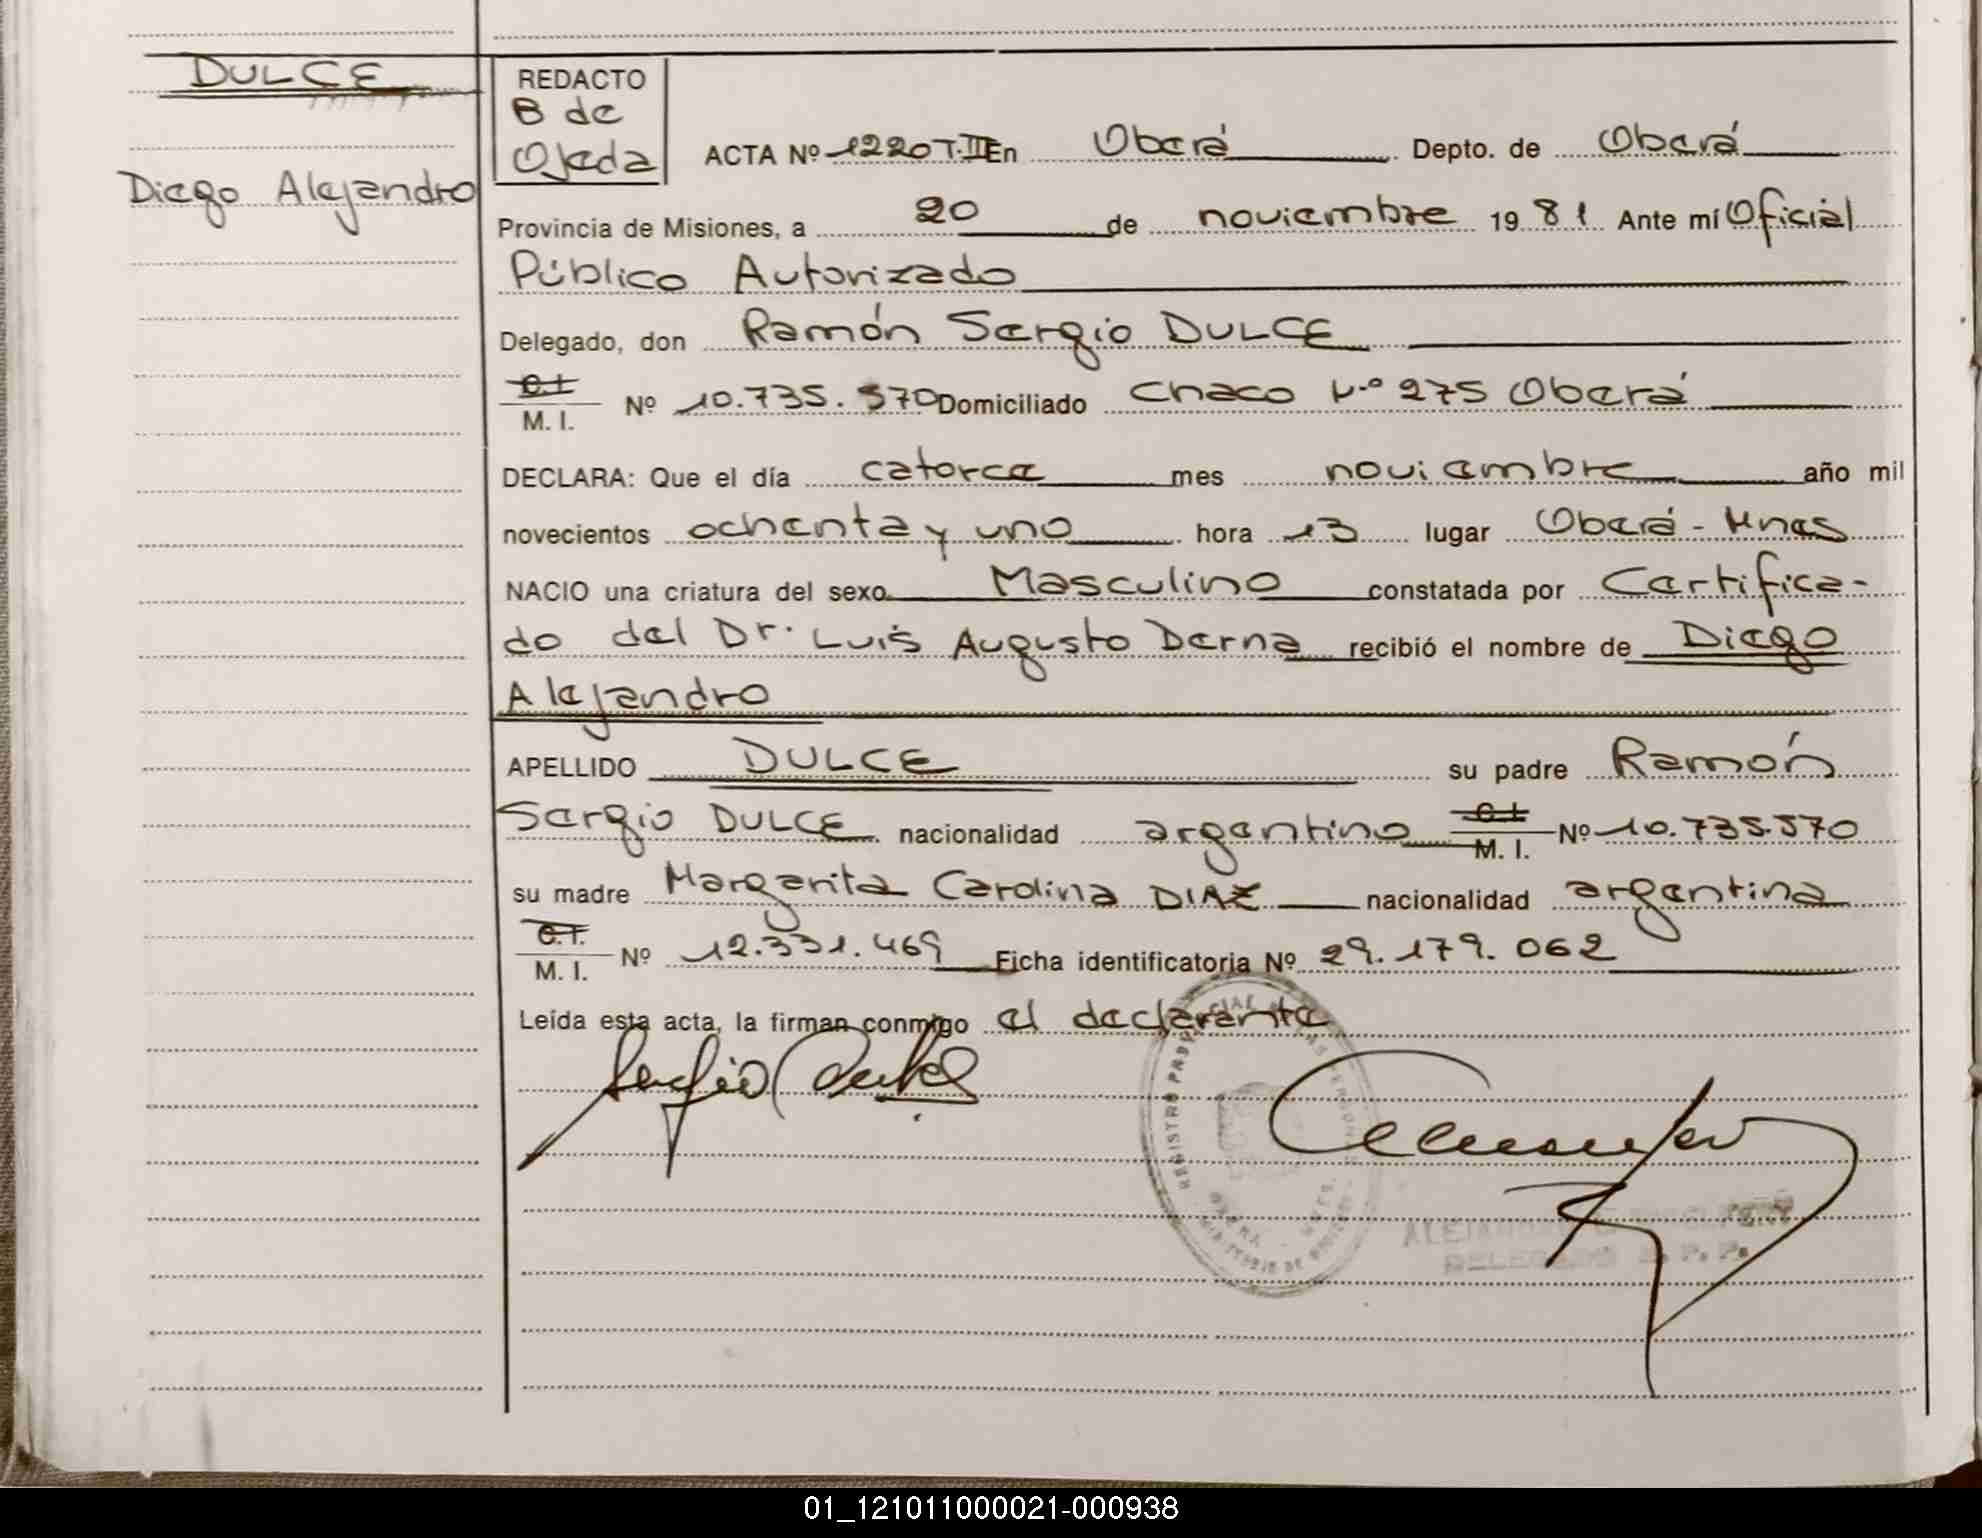 DULCE
Diego Alejandro
REDACTO
B de
Ojeda
ACTA Nº 1220 T.III En Oberá Depto. de Oberá
Provincia de Misiones, a 20 de noviembre 1981 Ante mí Oficial
Público Autorizado
Delegado, don Ramón Sergio DULCE
C.I.
M. I. Nº 10.735.570 Domiciliado Chaco Nº 275 Oberá
DECLARA: Que el día catorce mes noviembre año mil
novecientos ochenta y uno hora 13 lugar Oberá - Mnes
NACIO una criatura del sexo Masculino constatada por Certifica-
do del Dr. Luis Augusto Derna recibió el nombre de Diego
Alejandro
APELLIDO DULCE su padre Ramón
Sergio DULCE nacionalidad argentino C.I.
M. I. Nº 10.735.570
su madre Margarita Carolina DIAZ nacionalidad argentina
C.I.
M. I. Nº 12.331.469 Ficha identificatoria Nº 29.179.062
Leída esta acta, la firman conmigo el declarante
Sergio Dulce
REGISTRO PROVINCIAL DE LAS PERSONAS
DELEGADO R. P. P.
01_121011000021-000938